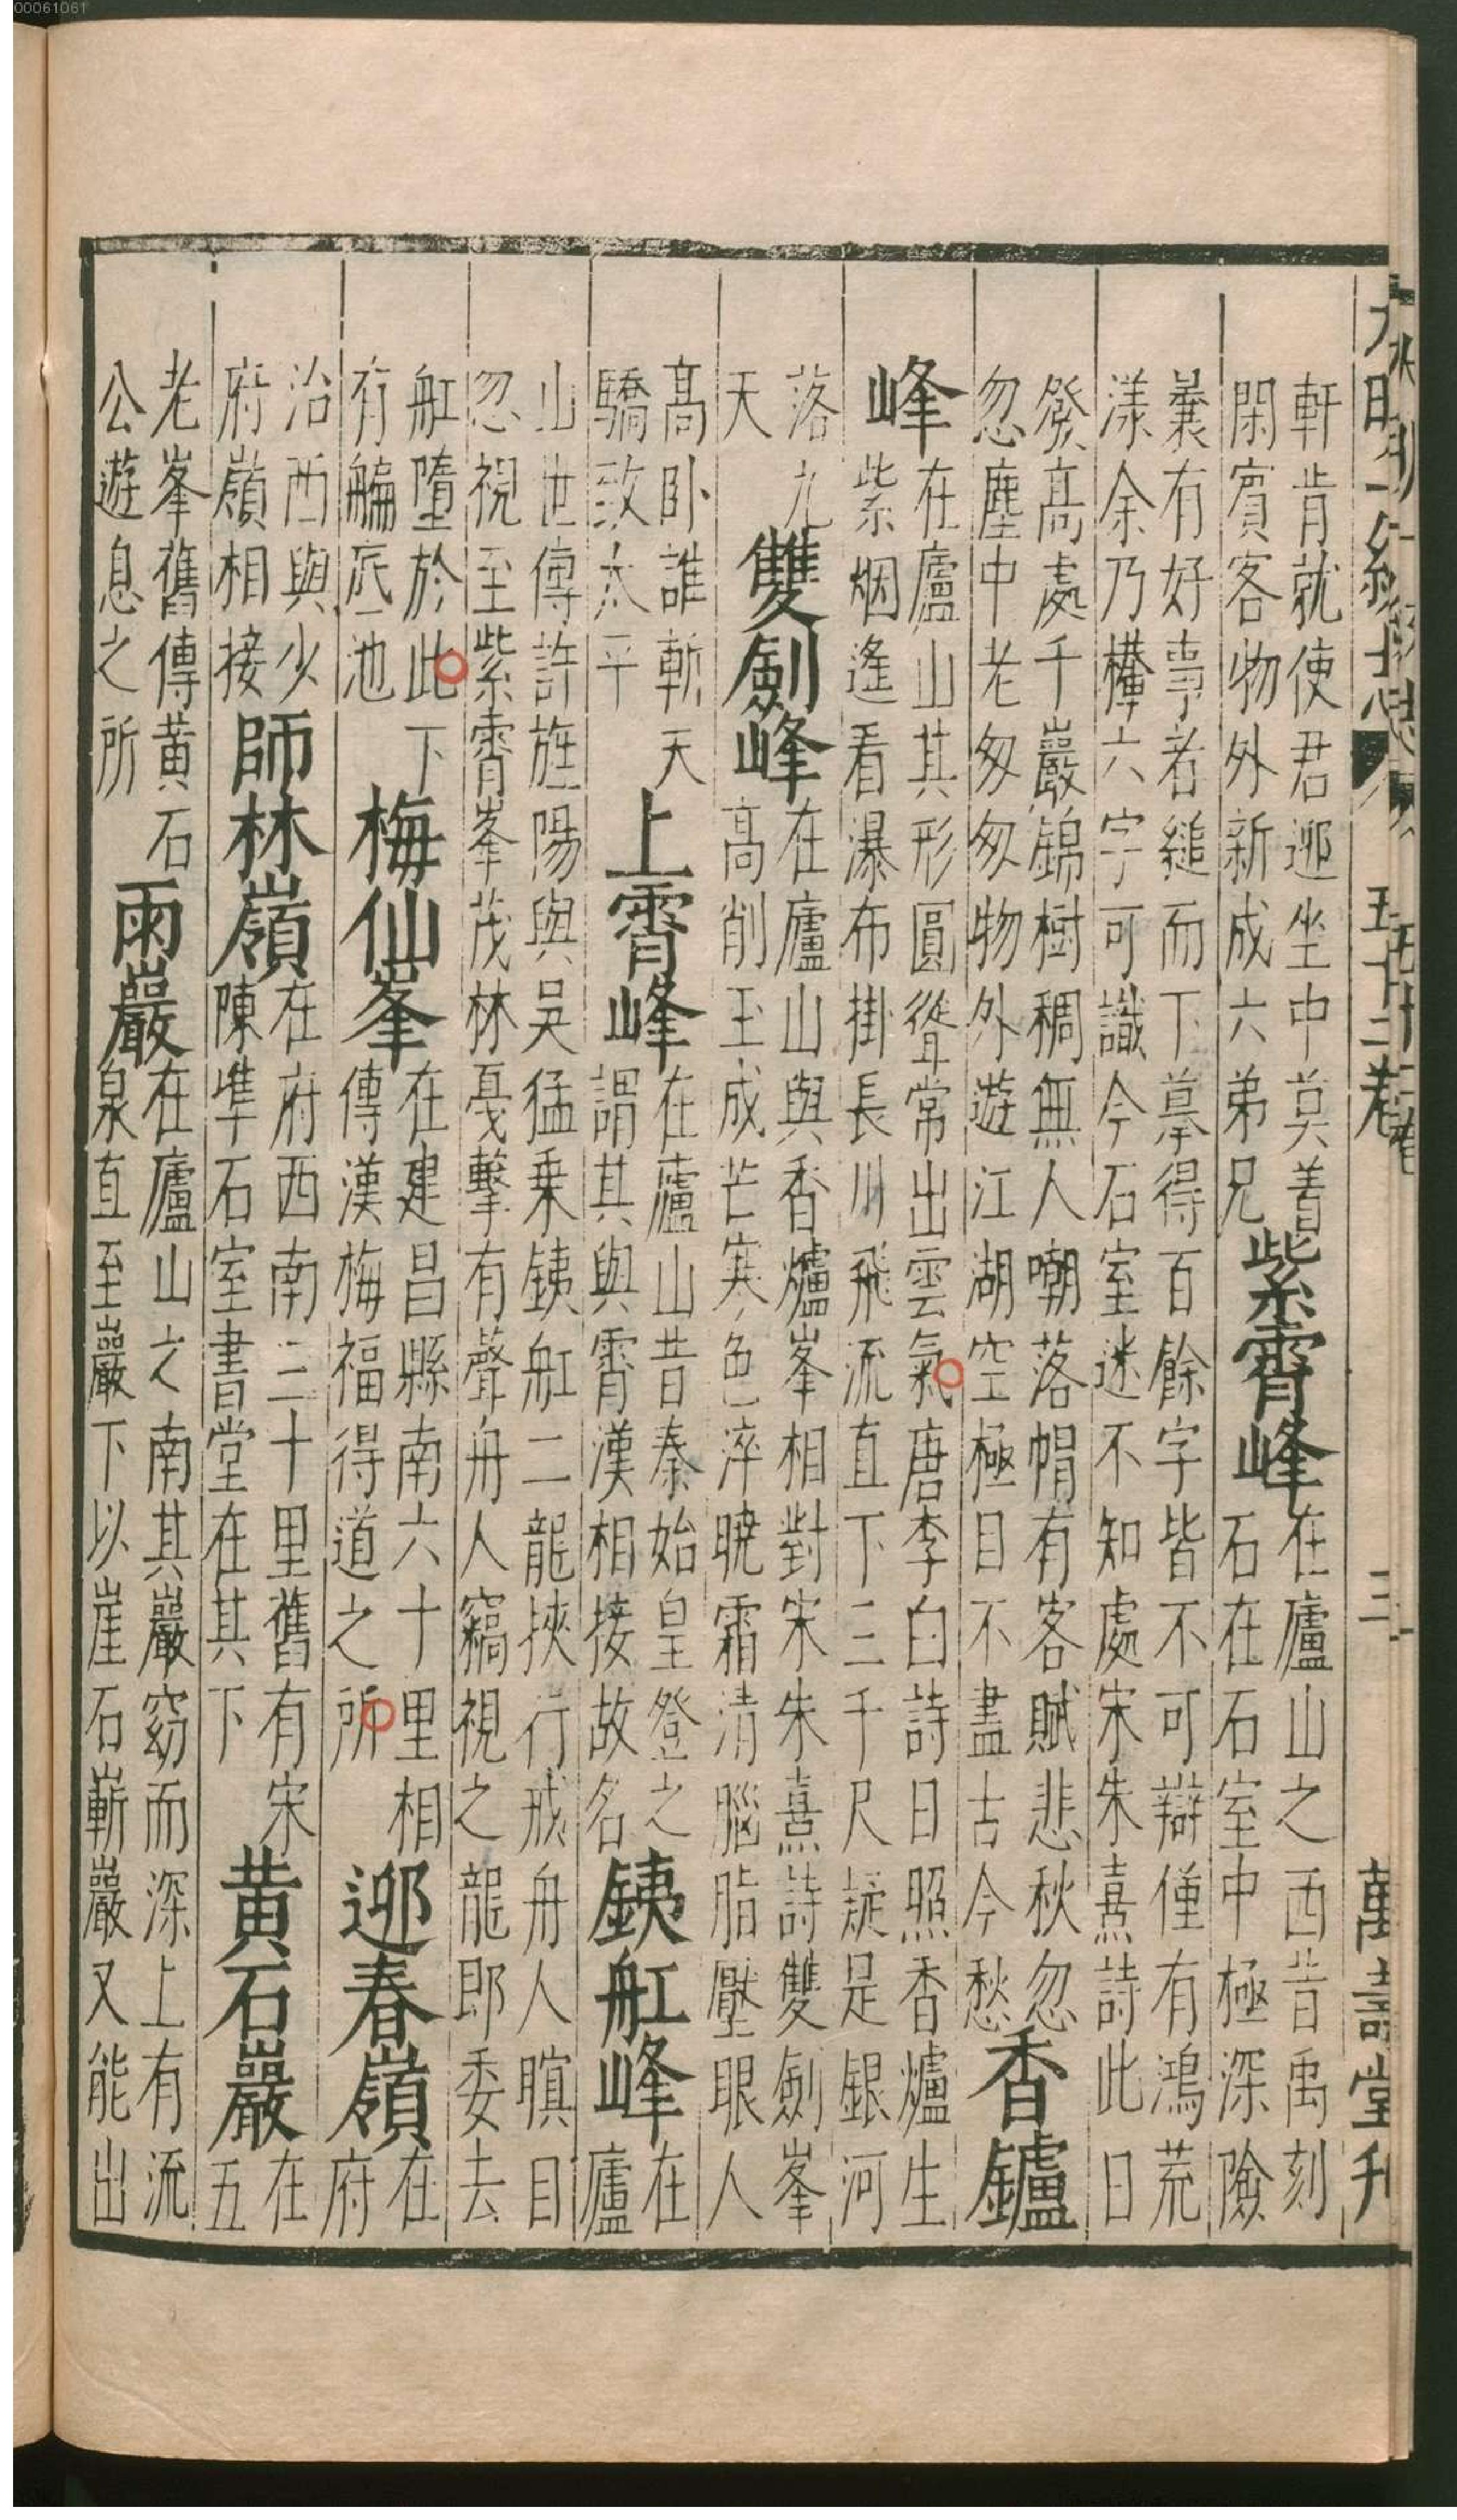 00061061
大明一統志 五十二卷 三 萬壽堂刋
軒肯就使君迎坐中莫着
閑賓客物外新成六弟兄
紫霄峰
在廬山之西昔禹刻
石在石室中極深險
曩有好事者縋而下摹得百餘字皆不可辯僅有鴻荒
漾余乃檋六字可識今石室迷不知處宋朱熹詩此日
發高處千巖錦樹稠無人嘲落帽有客賦悲秋忽
忽塵中老匆匆物外遊江湖空極目不盡古今愁
香鑪
峰
在廬山其形圓聳常出雲氣唐李白詩日照香爐生
紫烟遙看瀑布掛長川飛流直下三千尺疑是銀河
落九
天
雙劍峰
在廬山與香爐峯相對宋朱熹詩雙劍峯
高削玉成芒寒色淬曉霜清腦脂壓眼人
高臥誰斬天
驕致太平
上霄峰
在廬山昔秦始皇登之
謂其與霄漢相接故名
鉄舡峰
在
廬
山世傳許旌陽與吳猛乗鉄舡二龍挾行戒舟人瞑目
忽視至紫霄峯茂林戞擊有聲舟人竊視之龍即委去
舡墮於此下
有艑底池
梅仙峯
在建昌縣南六十里相
傳漢梅福得道之所
迎春嶺
在
府
治西與少
府嶺相接
師林嶺
在府西南三十里舊有宋
陳凖石室書堂在其下
黄石巖
在
五
老峯舊傳黄石
公遊息之所
雨巖
在廬山之南其巖窈而深上有流
泉直至巖下以崖石嶄巖又能出